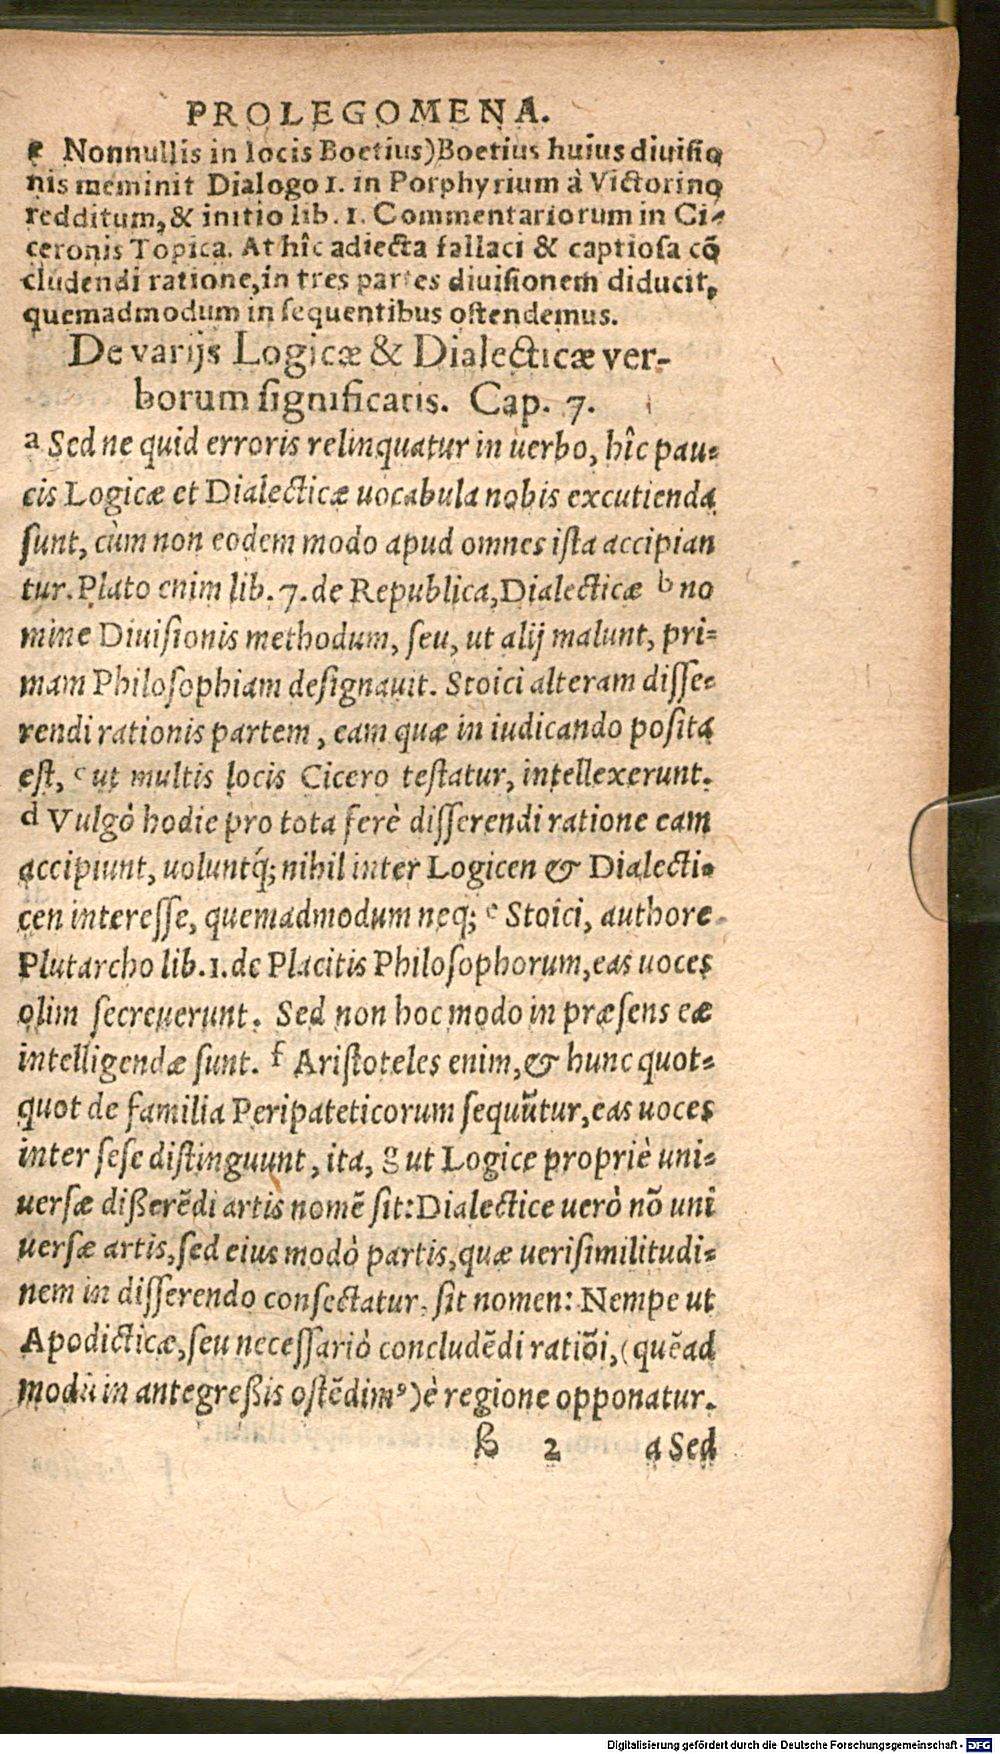 PROLEGOMENA.
e Nonnullis in locis Boetius) Boetius huius diuisio
nis meminit Dialogo 1. in Porphyrium à Victorino
redditum, & initio lib. 1. Commentariorum in Ci-
ceronis Topica. At hîc adiecta fallaci & captiosa cō
cludendi ratione, in tres partes diuisionem diducit,
quemadmodum in sequentibus ostendemus.
De varijs Logicæ & Dialecticæ ver-
borum significatis. Cap. 7.
a Sed ne quid erroris relinquatur in uerbo, hîc pau-
cis Logicæ et Dialecticæ uocabula nobis excutienda
sunt, cùm non eodem modo apud omnes ista accipian
tur. Plato enim lib. 7. de Republica, Dialecticæ b no
mine Diuisionis methodum, seu, ut alij malunt, pri-
mam Philosophiam designauit. Stoici alteram disse-
rendi rationis partem, eam quæ in iudicando posita
est, c ut multis locis Cicero testatur, intellexerunt.
d Vulgò hodie pro tota ferè disserendi ratione eam
accipiunt, uoluntq́; nihil inter Logicen & Dialecti-
cen interesse, quemadmodum neq; e Stoici, authore
Plutarcho lib. 1. de Placitis Philosophorum, eas uoces
olim secreuerunt. Sed non hoc modo in præsens eæ
intelligendæ sunt. f Aristoteles enim, & hunc quot-
quot de familia Peripateticorum sequūtur, eas uoces
inter sese distinguunt, ita, g ut Logice propriè uni-
uersæ dißerēdi artis nomē sit: Dialectice uerò nō uni
uersæ artis, sed eius modò partis, quæ uerisimilitudi-
nem in disserendo consectatur, sit nomen: Nempe ut
Apodicticæ, seu necessariò concludēdi ratiōi, (quēad
modū in antegreßis ostēdimꝰ) è regione opponatur.
B 2 a Sed
Digitalisierung gefördert durch die Deutsche Forschungsgemeinschaft - DFG